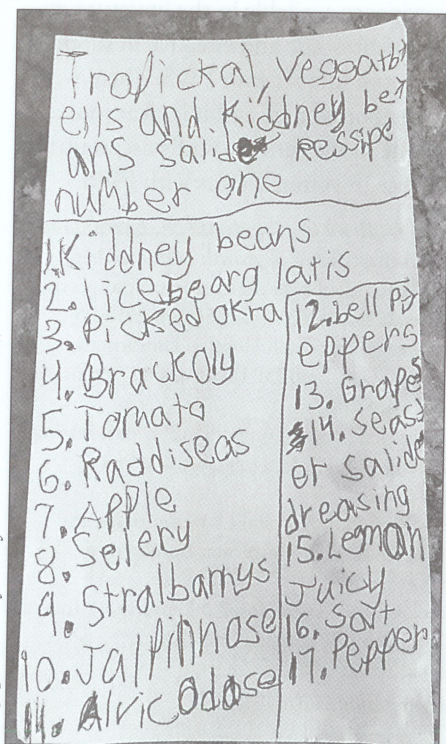 Tropickal, Veggatb
ells and Kiddney be
ans salide ressipe
number one
1. Kiddney beans
2. licebearg latis
3. Picked okra
4. Brackoly
5. Tomata
6. Raddiseas
7. Apple
8. Selery
9. Stralbarnys
10. Jalpinnose
11. Alvicodase
12. bell p
eppers
13. Grapes
14. Seas
er salide
dreasing
15. Leman
Juicy
16. Salt
17. Pepper